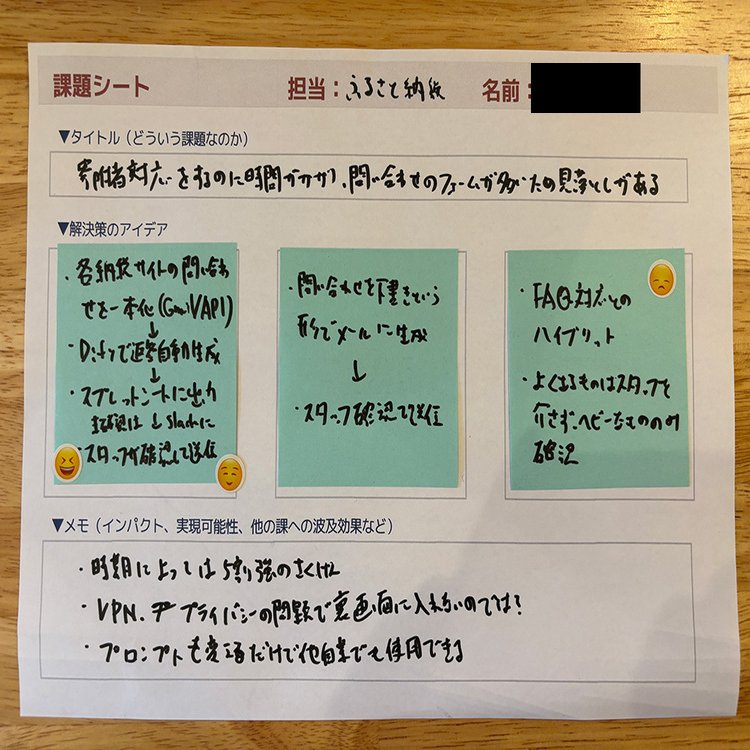 課題シート
担当：ふるさと納税
名前：
▼タイトル（どういう課題なのか）
寄附者対応をするのに時間がかかり、問い合わせのフォームが多いため見落としがある
▼解決策のアイデア
・各納税サイトの問い合わ
せを一本化(GmailAPI)
↓
・Difyで返答自動生成
↓
・スプレットシートに出力
または↓Slackに
・スタッフが確認して送信
・問い合わせを下書きという
形でメールに生成
↓
・スタッフ確認して送信
・FAQ対応との
ハイブリット
・よくあるものはスタッフを
介さず、ヘビーなもののみ
確認
▼メモ（インパクト、実現可能性、他の課への波及効果など）
・時期によっては5割強のさくげん
・VPN、プライバシーの問題で裏画面に入れないのでは？
・プロンプトを変えるだけで他自業でも使用できる